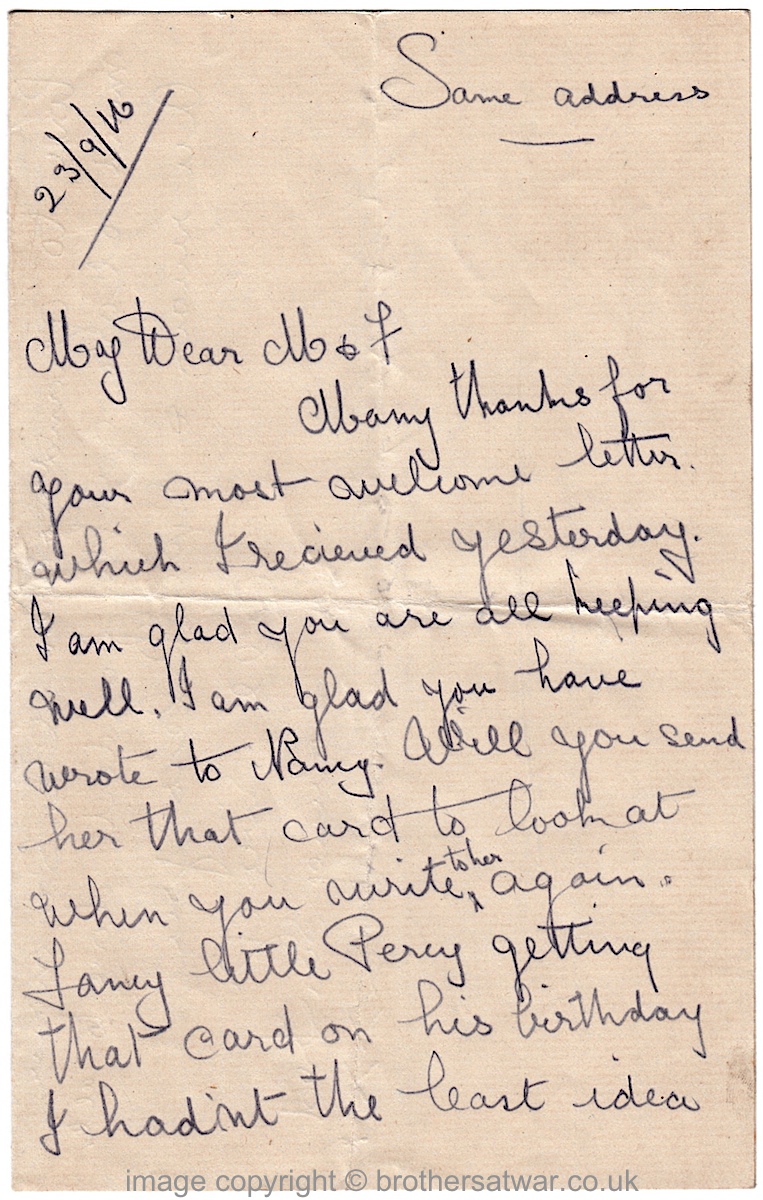 Same address
23/9/16
My Dear M & F
Many thanks for
your most welcome letter.
which I recieved yesterday.
I am glad you are all keeping
well. I am glad you have
wrote to Nancy. Will you send
her that card to look at
when you write to her again.
Fancy little Percy getting
that card on his birthday
I had'nt the least idea
image copyright © brothersatwar.co.uk